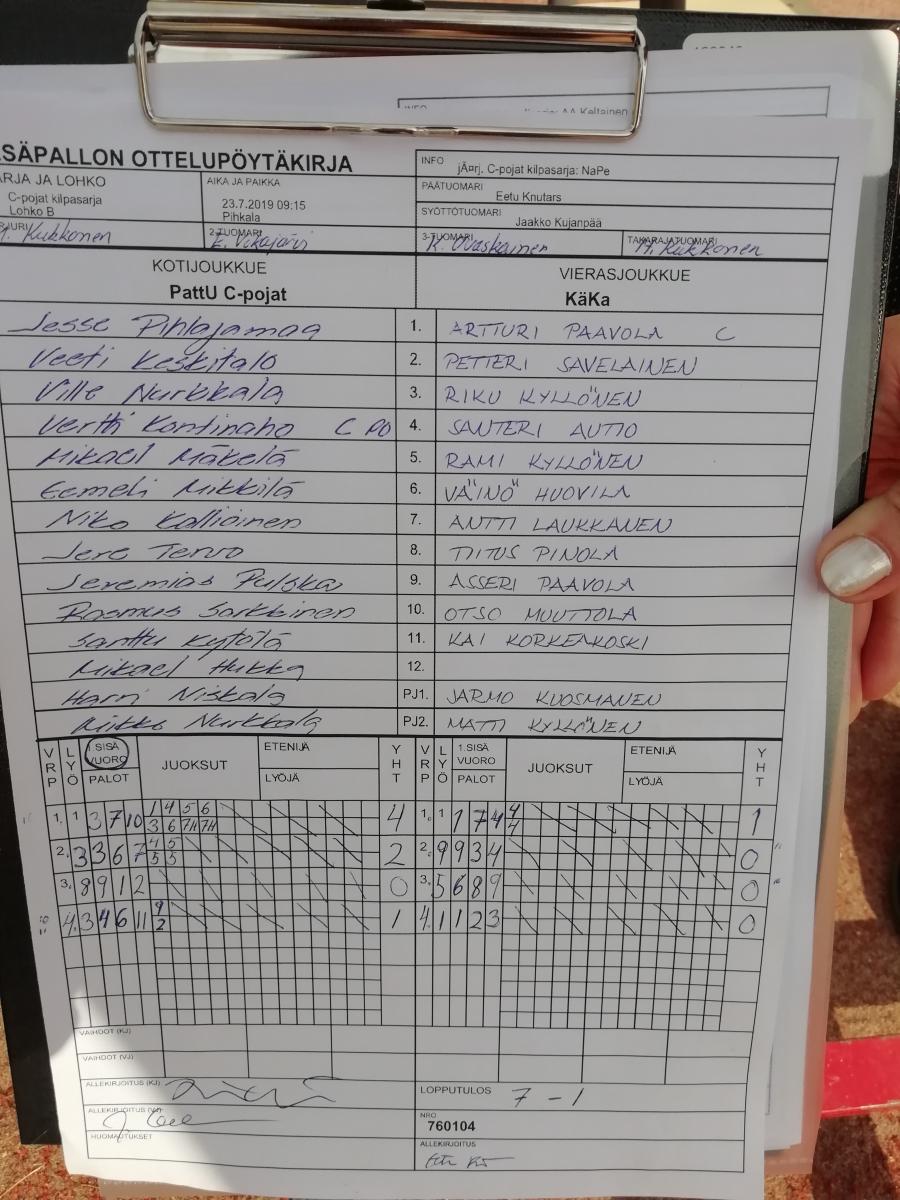 INFO AA Keltainen
SÄPALLON OTTELUPÖYTÄKIRJA
INFO jÃ¤rj. C-pojat kilpasarja: NaPe
ARJA JA LOHKO
C-pojat kilpasarja
Lohko B
AIKA JA PAIKKA
23.7.2019 09:15
Pihkala
PÄÄTUOMARI Eetu Knutars
SYÖTTÖTUOMARI Jaakko Kujanpää
Kukkonen 2-TUOMARI 3-TUOMARI TAKARAJATUOMARI Kukkonen
KOTIJOUKKUE VIERASJOUKKUE
PattU C-pojat KäKa
Jesse Pihlajamaa 1. ARTTURI PAAVOLA C
Veeti Keskitalo 2. PETTERI SAVELAINEN
Ville Nurkkala 3. RIKU KYLLÖNEN
Vertti Kontinaho C PO 4. SANTERI AUTIO
Mikael Mäkelä 5. RAMI KYLLÖNEN
Eemeli Mikkilä 6. VÄINÖ HUOVILA
Niko Kallioinen 7. ANTTI LAUKKANEN
Jere Tervo 8. TIITUS PINOLA
Jeremias Pulska 9. ASSERI PAAVOLA
Rasmus Sarkkinen 10. OTSO MUUTTOLA
Santtu Kytölä 11. KAI KORKEAKOSKI
Mikael Hukka 12.
Harri Niskala PJ1. JARMO KUOSMANEN
Mikko Nurkkala PJ2. MATTI KYLLÖNEN
VRP LYÖ 1.SISÄ VUORO PALOT JUOKSUT ETENIJÄ LYÖJÄ YHT VRP LYÖ 1.SISÄ VUORO PALOT JUOKSUT ETENIJÄ LYÖJÄ YHT
1. 1 3 7 10 1/3 4/6 5/7H 6/7H 4 1. 1 1 7 4 4/4 1
2. 3 3 6 7 4/5 5/5 2 2. 9 9 3 4 0
3. 8 9 1 2 0 3. 5 6 8 9 0
4. 3 4 6 11 9/2 1 4. 1 1 2 3 0
VAIHDOT (KJ)
VAIHDOT (VJ)
ALLEKIRJOITUS (KJ) LOPPUTULOS 7 - 1
ALLEKIRJOITUS (VJ) NRO
760104
HUOMAUTUKSET ALLEKIRJOITUS